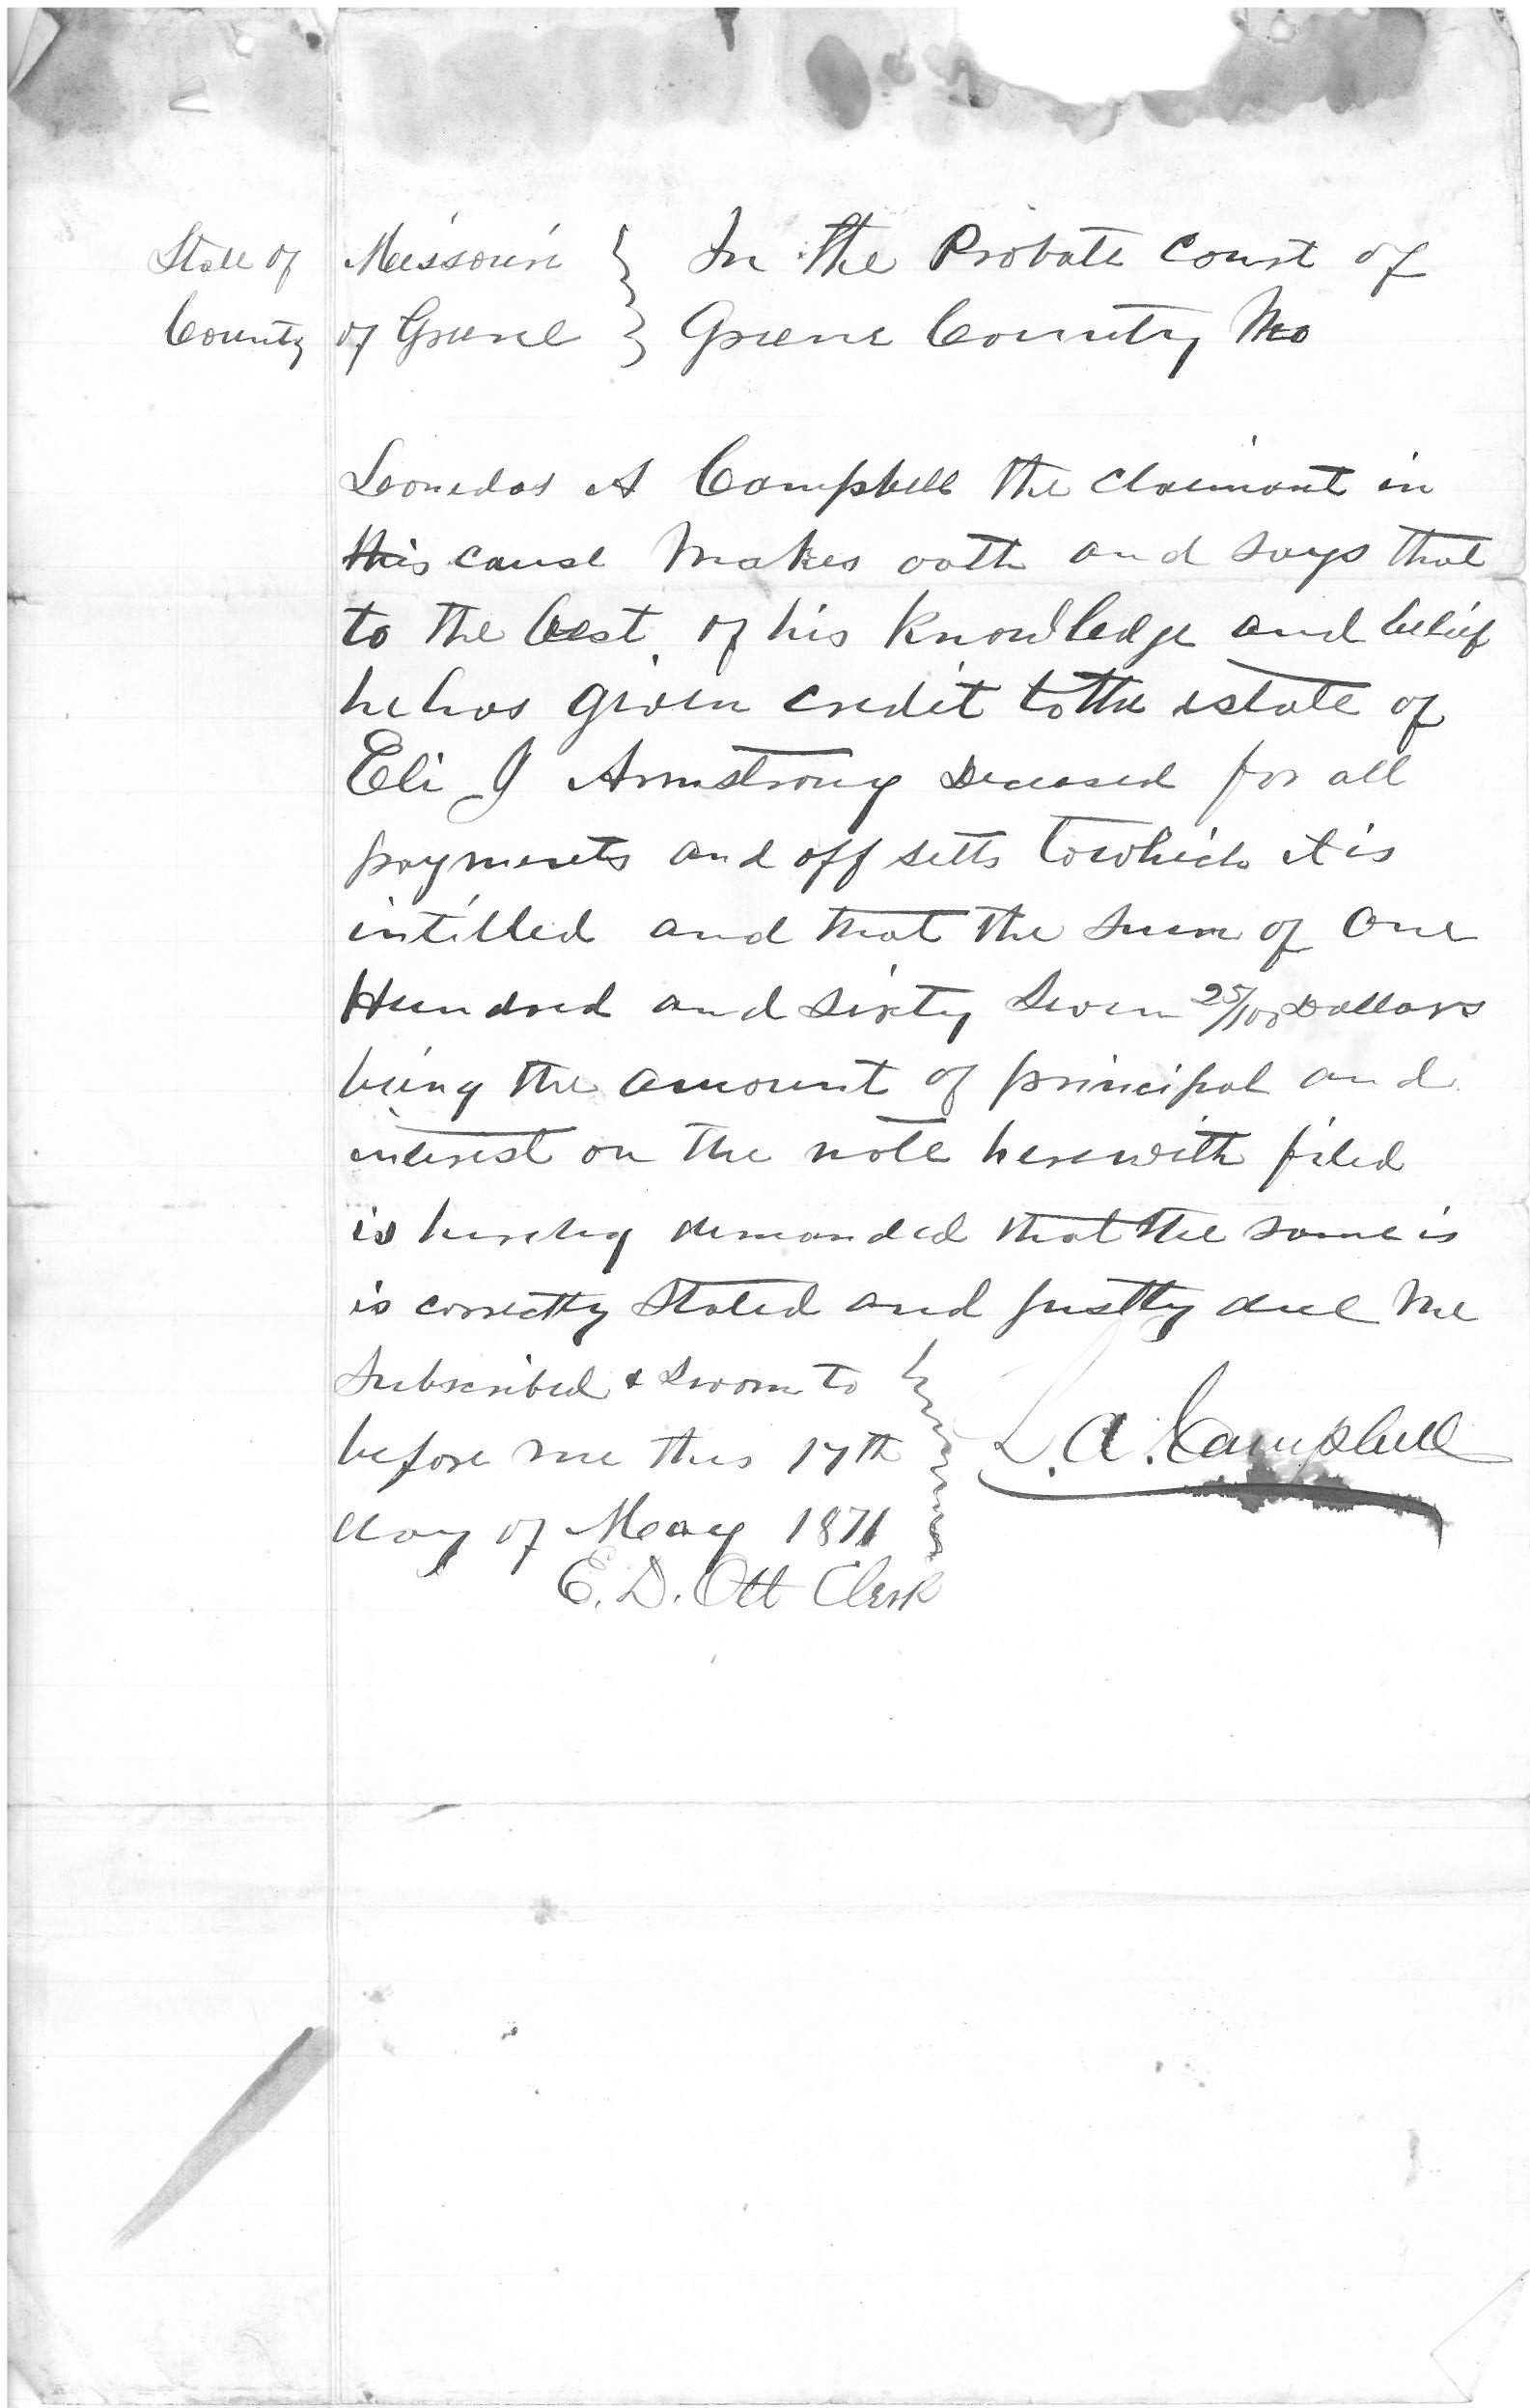 State of Missouri } In the Probate Court of
County of Greene } Greene County Mo
Leonedas A Campbell the claimant in
this cause Makes oath and says that
to the best of his knowledge and belief
he has given credit to the estate of
Eli J Armstrong Deceased for all
payments and off setts to which it is
intitled and that the sum of One
Hundred and sixty Seven 25/100 Dollars
being the amount of principal and
interest on the note herewith filed
is hereby demanded that the same is
is correctly stated and justly due me
Subscribed & sworn to
before me this 17th } L. A. Campbell
day of May 1871
E. D. Ott Clerk